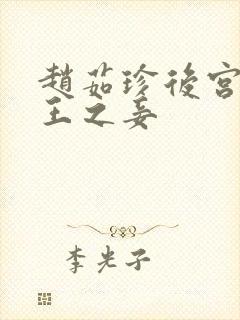 趙茹珍後宮
王之妾
李光子